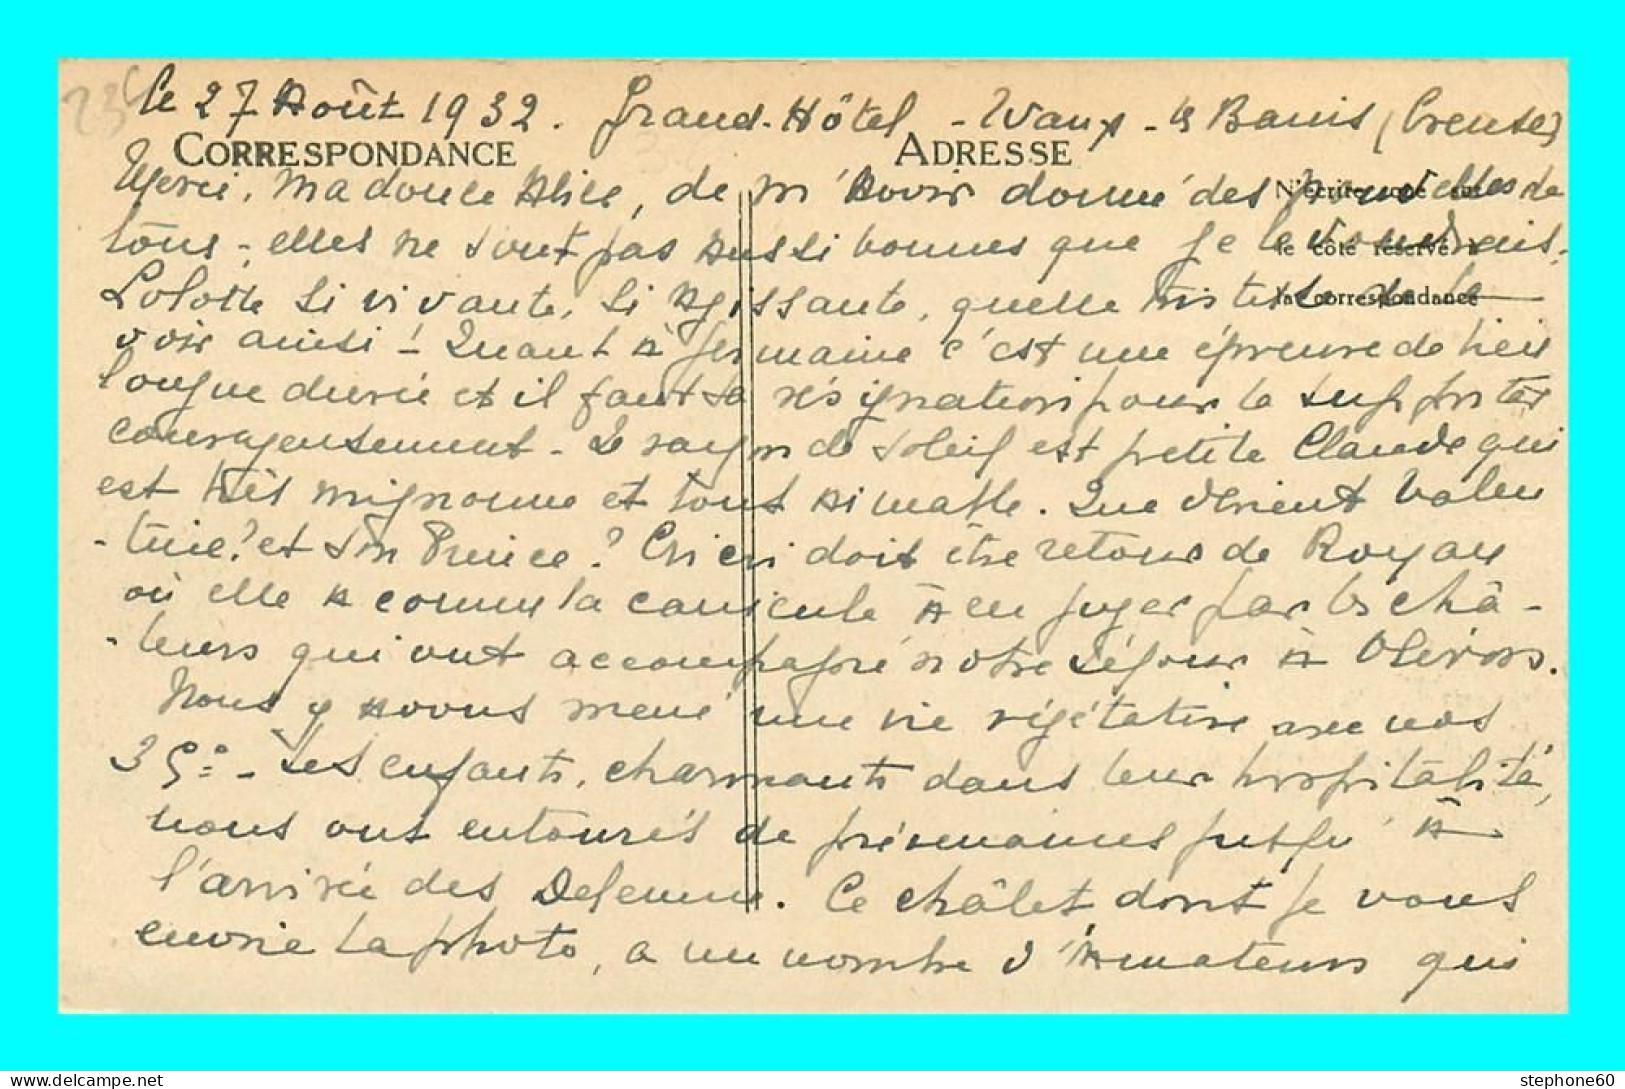 le 27 Août 1932. Grand-Hôtel - Evaux-les Bains (Creuse)
CORRESPONDANCE ADRESSE
N'écrire que sur
le côté réservé à
la correspondance
Merci, ma douce Alice, de m'avoir donné des nouvelles de
tous - elles ne sont pas aussi bonnes que je le voudrais.
Lolotte si vivante, si agissante, quelle tristesse de la
voir ainsi ! Quant à Germaine c'est une épreuve de bien
longue durée et il faut sa résignation pour la supporter
courageusement - Le rayon de soleil est petite Claude qui
est très mignonne et tout aimable. Que devient Valen
-tine ? et son Prince ? Cricri doit être retour de Royan
où elle a connu la canicule à en juger par les châ-
-leurs qui ont accompagné notre séjour à
Nous y avons mené une vie végétative avec nos
35° - Les enfants, charmants dans leur hospitalité,
nous ont entourés de prévenances jusqu'à
l'arrivée des Dejeunne. Ce châlet dont je vous
envoie la photo, a un nombre d'amateurs qui
stephone60